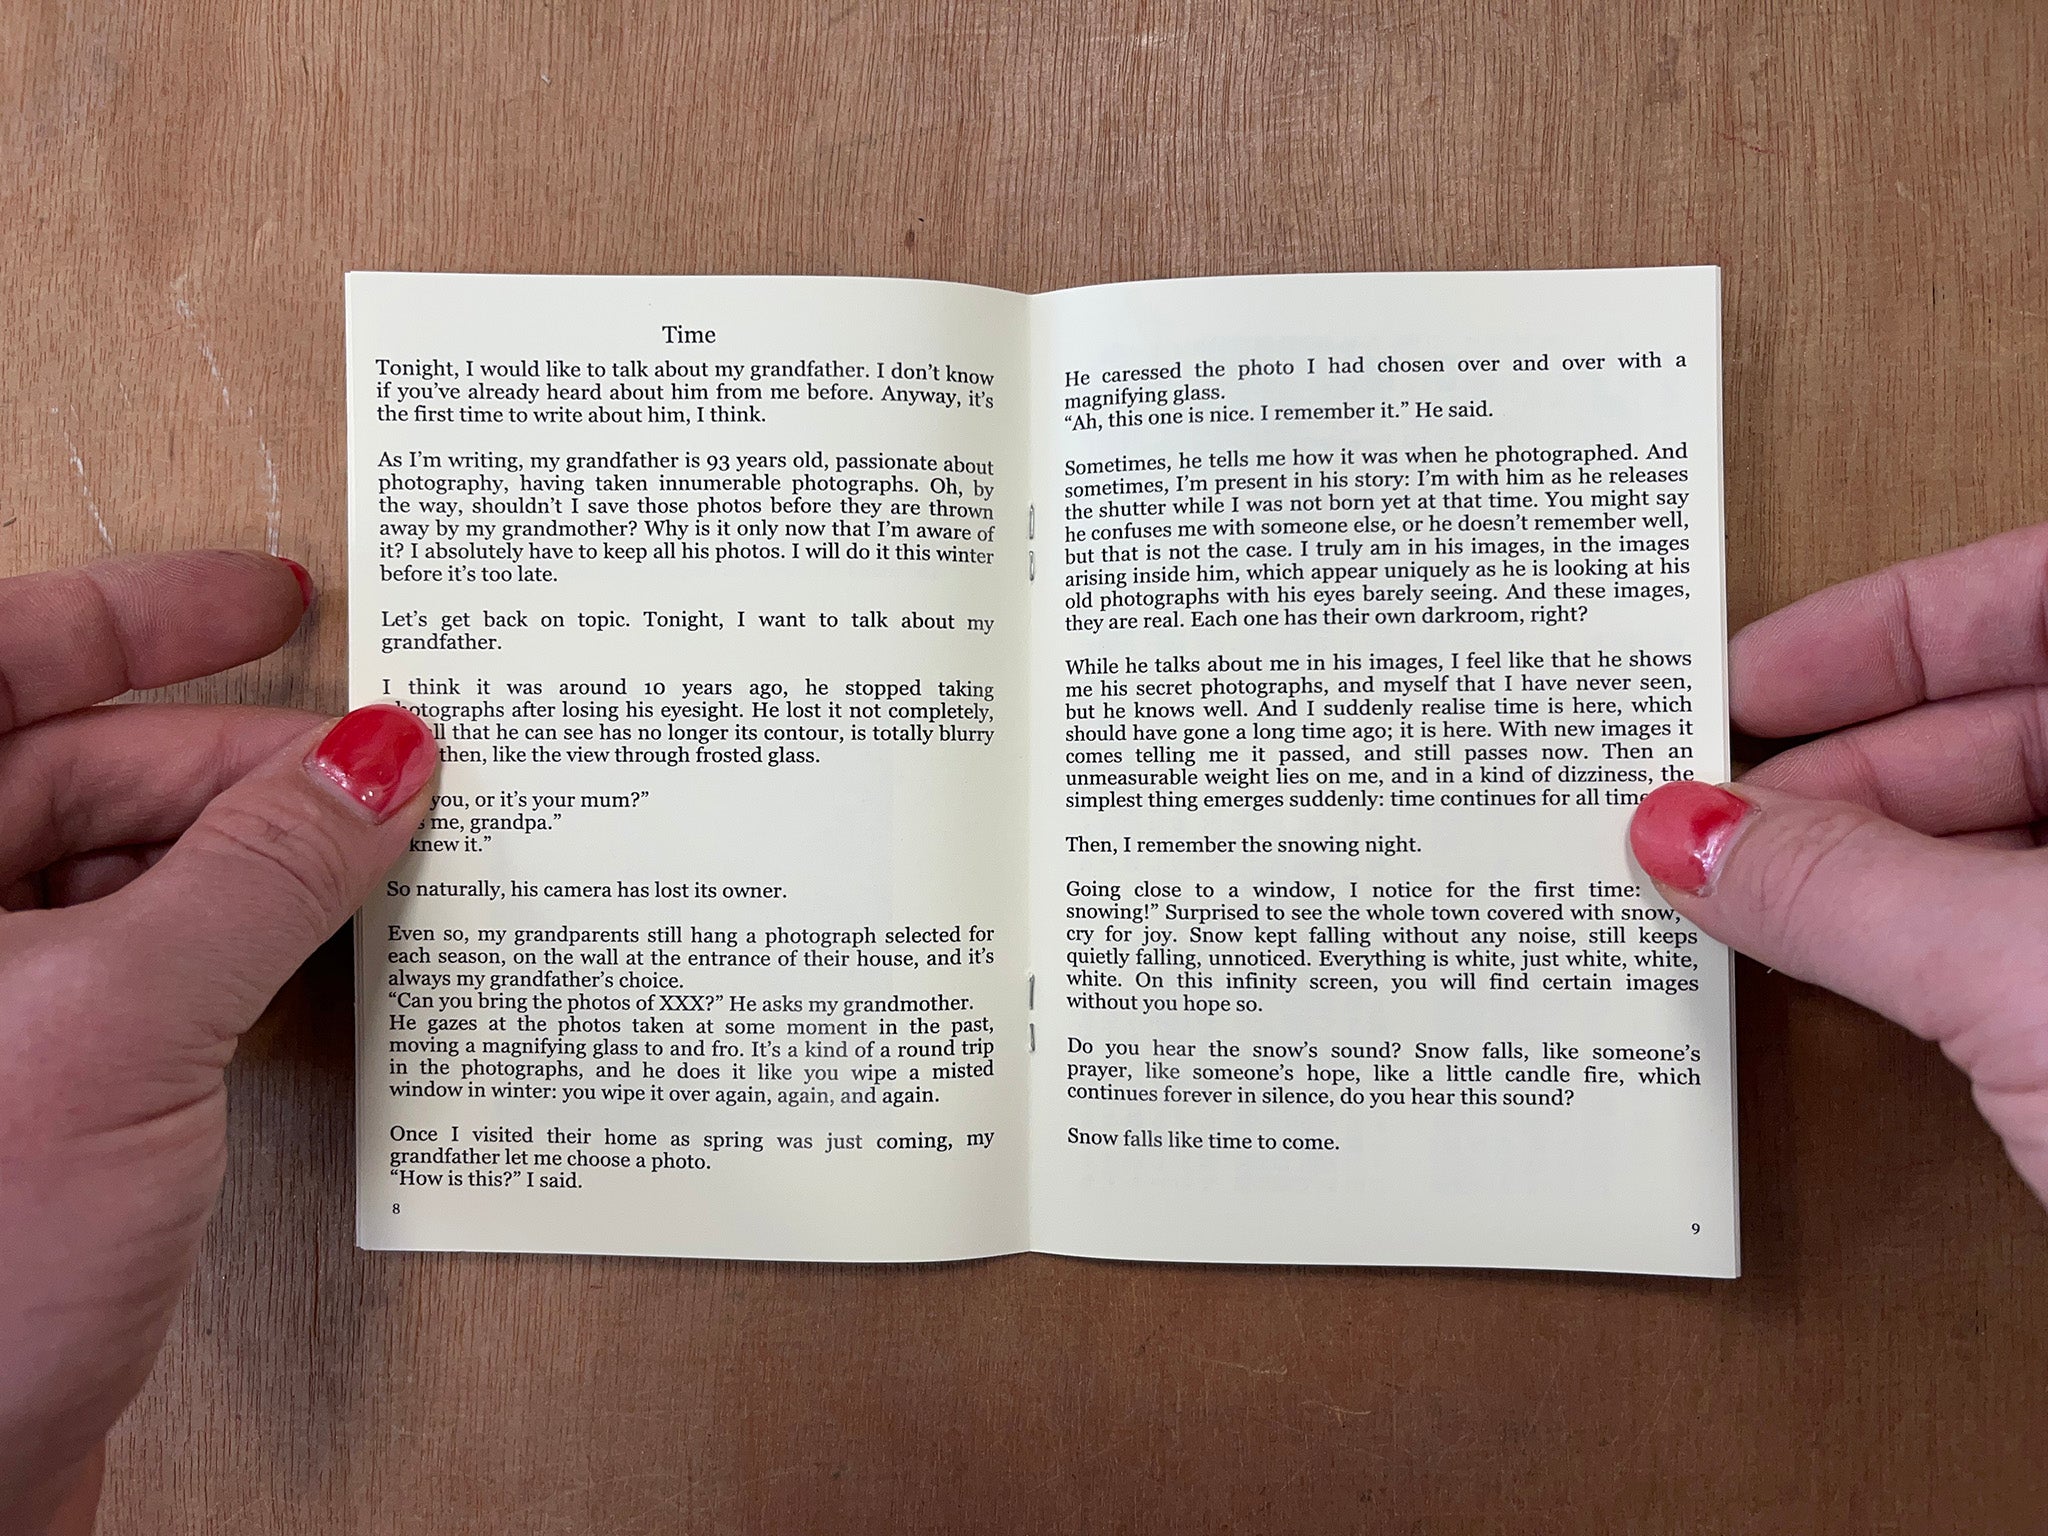 Time
Tonight, I would like to talk about my grandfather. I don't know
if you've already heard about him from me before. Anyway, it's
the first time to write about him, I think.
As I'm writing, my grandfather is 93 years old, passionate about
photography, having taken innumerable photographs. Oh, by
the way, shouldn't I save those photos before they are thrown
away by my grandmother? Why is it only now that I'm aware of
it? I absolutely have to keep all his photos. I will do it this winter
before it's too late.
Let's get back on topic. Tonight, I want to talk about my
grandfather.
I think it was around 10 years ago, he stopped taking
after losing his eyesight. He lost it not completely,
that he can see has no longer its contour, is totally blurry
then, like the view through frosted glass.
you, or it's your mum?”
me, grandpa.”
knew it.”
So naturally, his camera has lost its owner.
Even so, my grandparents still hang a photograph selected for
each season, on the wall at the entrance of their house, and it's
always my grandfather's choice.
“Can you bring the photos of XXX?” He asks my grandmother.
He gazes at the photos taken at some moment in the past,
moving a magnifying glass to and fro. It's a kind of a round trip
in the photographs, and he does it like you wipe a misted
window in winter: you wipe it over again, again, and again.
Once I visited their home as spring was just coming, my
grandfather let me choose a photo.
“How is this?” I said.
8
He caressed the photo I had chosen over and over with a
magnifying glass.
“Ah, this one is nice. I remember it.” He said.
Sometimes, he tells me how it was when he photographed. And
sometimes, I'm present in his story: I'm with him as he releases
the shutter while I was not born yet at that time. You might say
he confuses me with someone else, or he doesn't remember well,
but that is not the case. I truly am in his images, in the images
arising inside him, which appear uniquely as he is looking at his
old photographs with his eyes barely seeing. And these images,
they are real. Each one has their own darkroom, right?
While he talks about me in his images, I feel like that he shows
me his secret photographs, and myself that I have never seen,
but he knows well. And I suddenly realise time is here, which
should have gone a long time ago; it is here. With new images it
comes telling me it passed, and still passes now. Then an
unmeasurable weight lies on me, and in a kind of dizziness, the
simplest thing emerges suddenly: time continues for all time
Then, I remember the snowing night.
Going close to a window, I notice for the first time:
snowing!” Surprised to see the whole town covered with snow,
cry for joy. Snow kept falling without any noise, still keeps
quietly falling, unnoticed. Everything is white, just white, white,
white. On this infinity screen, you will find certain images
without you hope so.
Do you hear the snow's sound? Snow falls, like someone's
prayer, like someone's hope, like a little candle fire, which
continues forever in silence, do you hear this sound?
Snow falls like time to come.
9